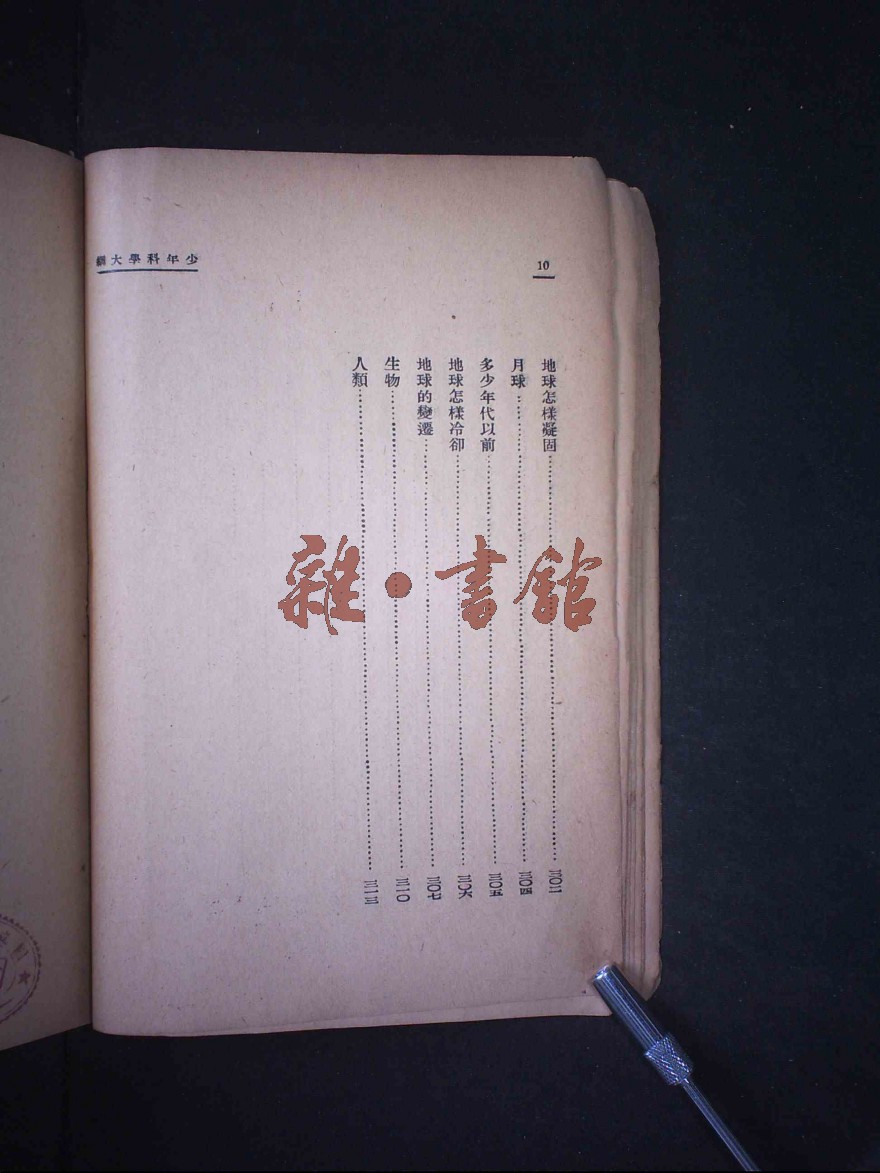 少年科學大綱
10
地球怎樣凝固……三〇二
月球……三〇四
多少年代以前……三〇五
地球怎樣冷卻……三〇六
地球的變遷……三〇七
生物……三一〇
人類……三一三
雜·書館